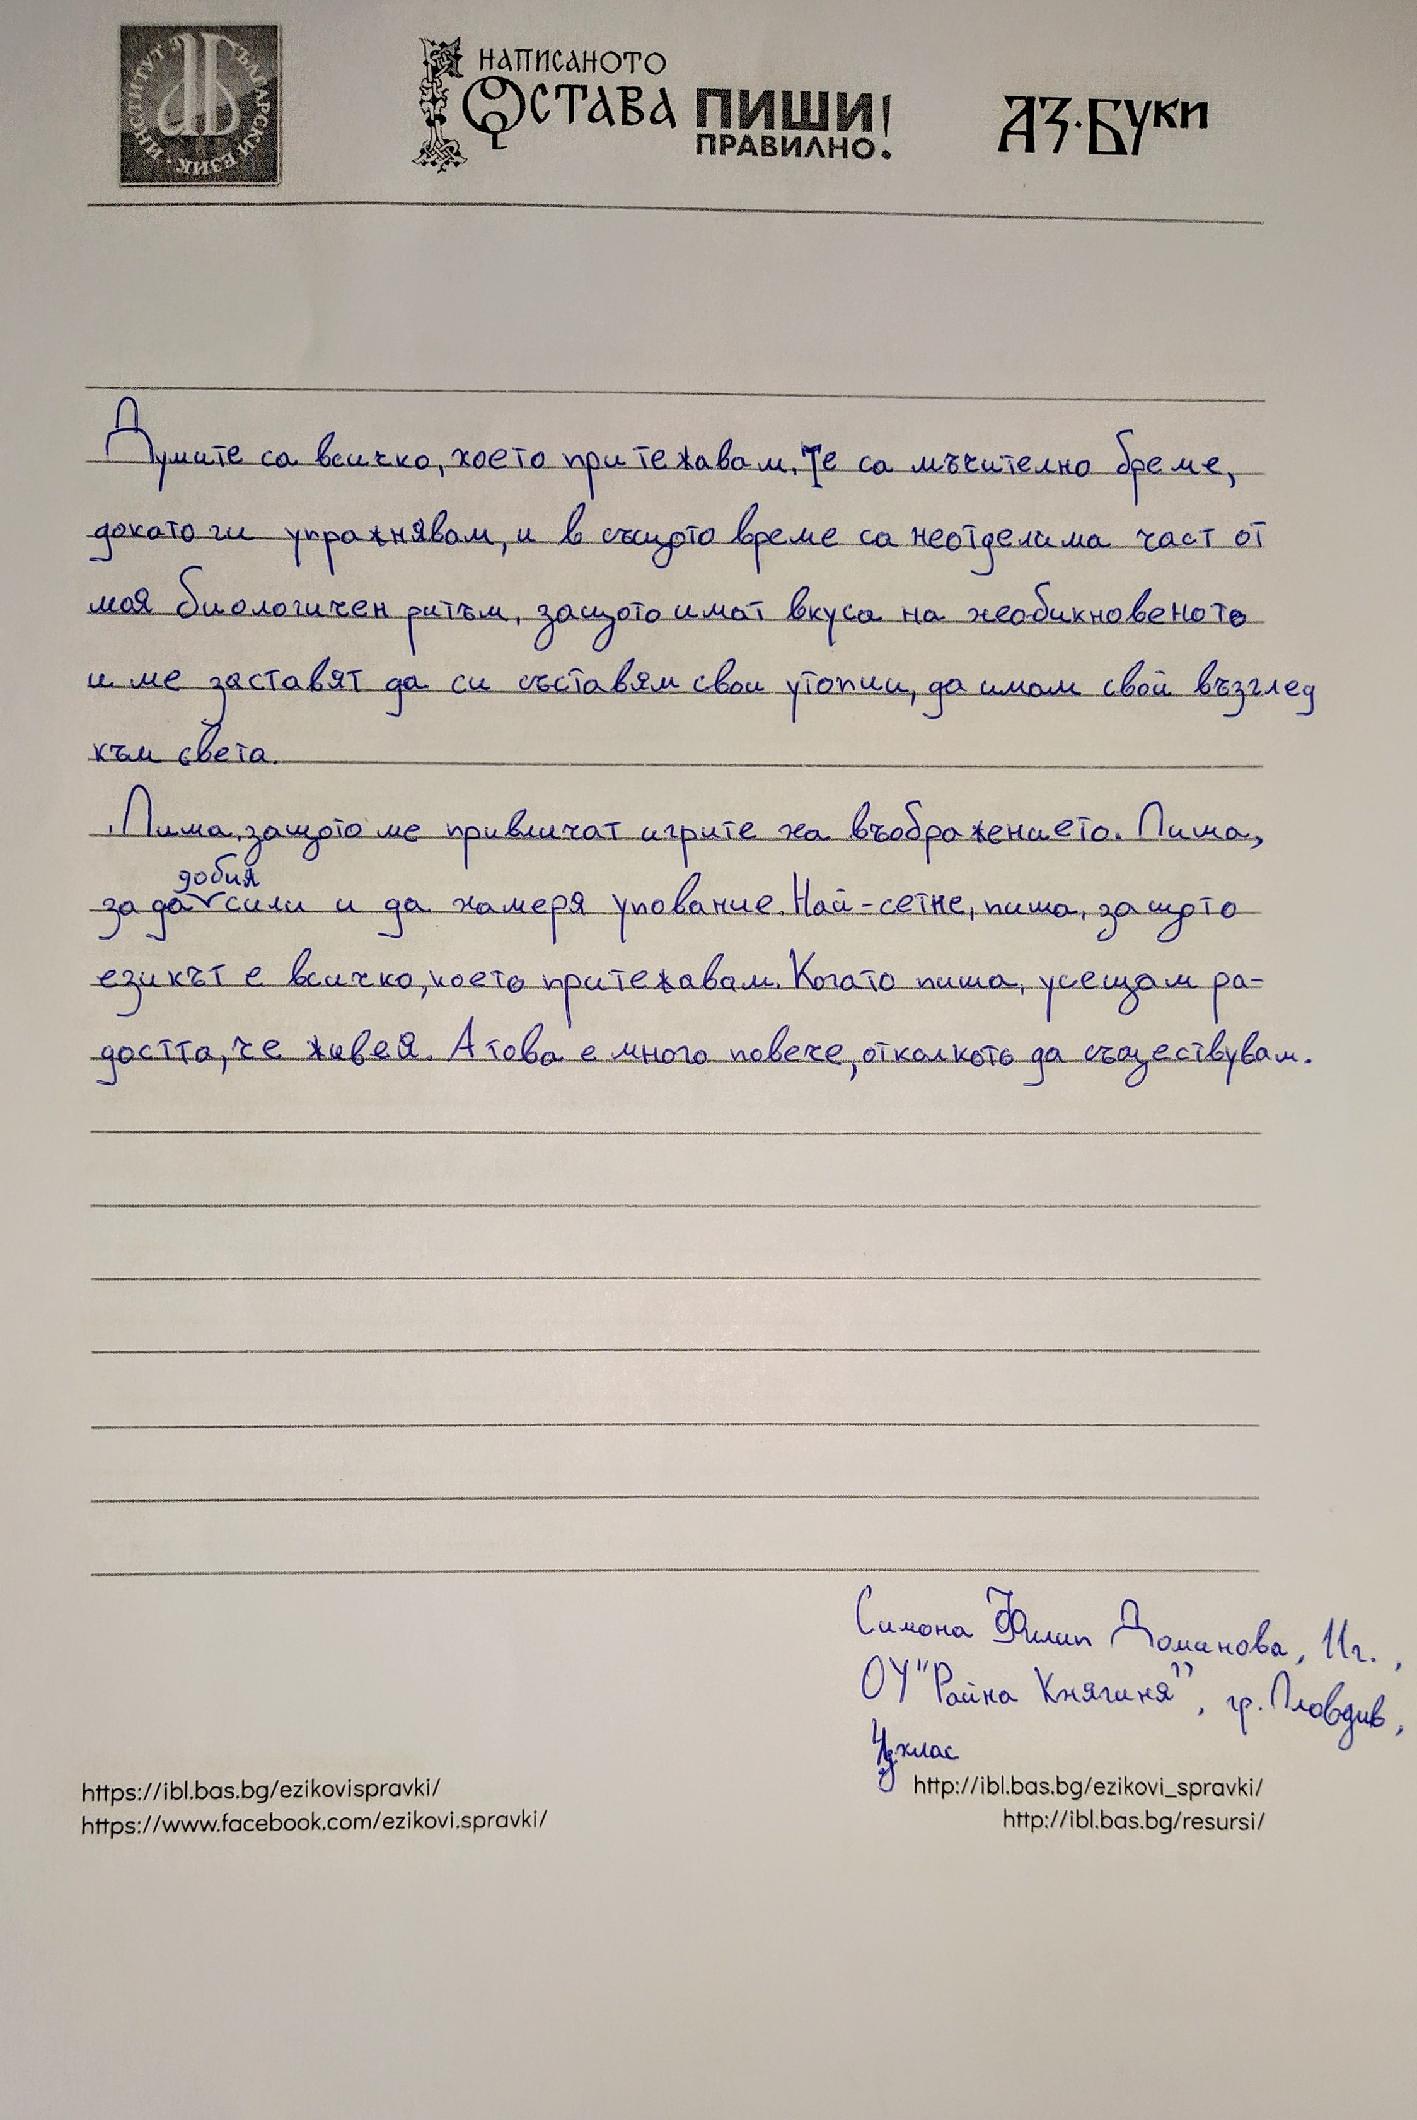 ИНСТИТУТ ЗА БЪЛГАРСКИ ЕЗИК
НАПИСАНОТО
ОСТАВА
ПИШИ
ПРАВИЛНО!
АЗ·БУКИ
Думите са всичко, което притежавам. Те са мъчително бреме,
докато ги упражнявам, и в същото време са неотделима част от
моя биологичен ритъм, защото имат вкуса на необикновеното
и ме заставят да си съставям свои утопии, да имам свой възглед
към света.
Пиша, защото ме привличат игрите на въображението. Пиша,
за да добия сили и да намеря упование. Най-сетне, пиша, защото
езикът е всичко, което притежавам. Когато пиша, усещам ра-
достта, че живея. А това е много повече, отколкото да съществувам.
Симона Филип Доминова, 11г.,
ОУ "Райна Княгиня", гр. Пловдив,
клас
https://ibl.bas.bg/ezikovispravki/
http://ibl.bas.bg/ezikovi_spravki/
https://www.facebook.com/ezikovi.spravki/
http://ibl.bas.bg/resursi/